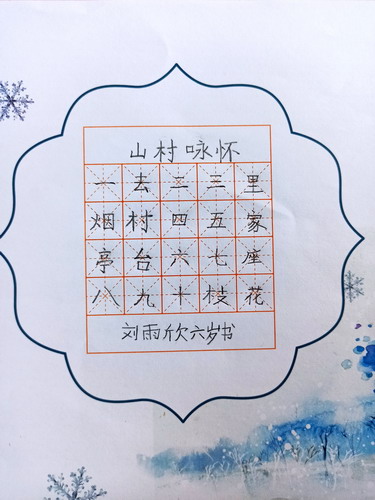 山村咏怀
一去二三里
烟村四五家
亭台六七座
八九十枝花
刘雨欣六岁书